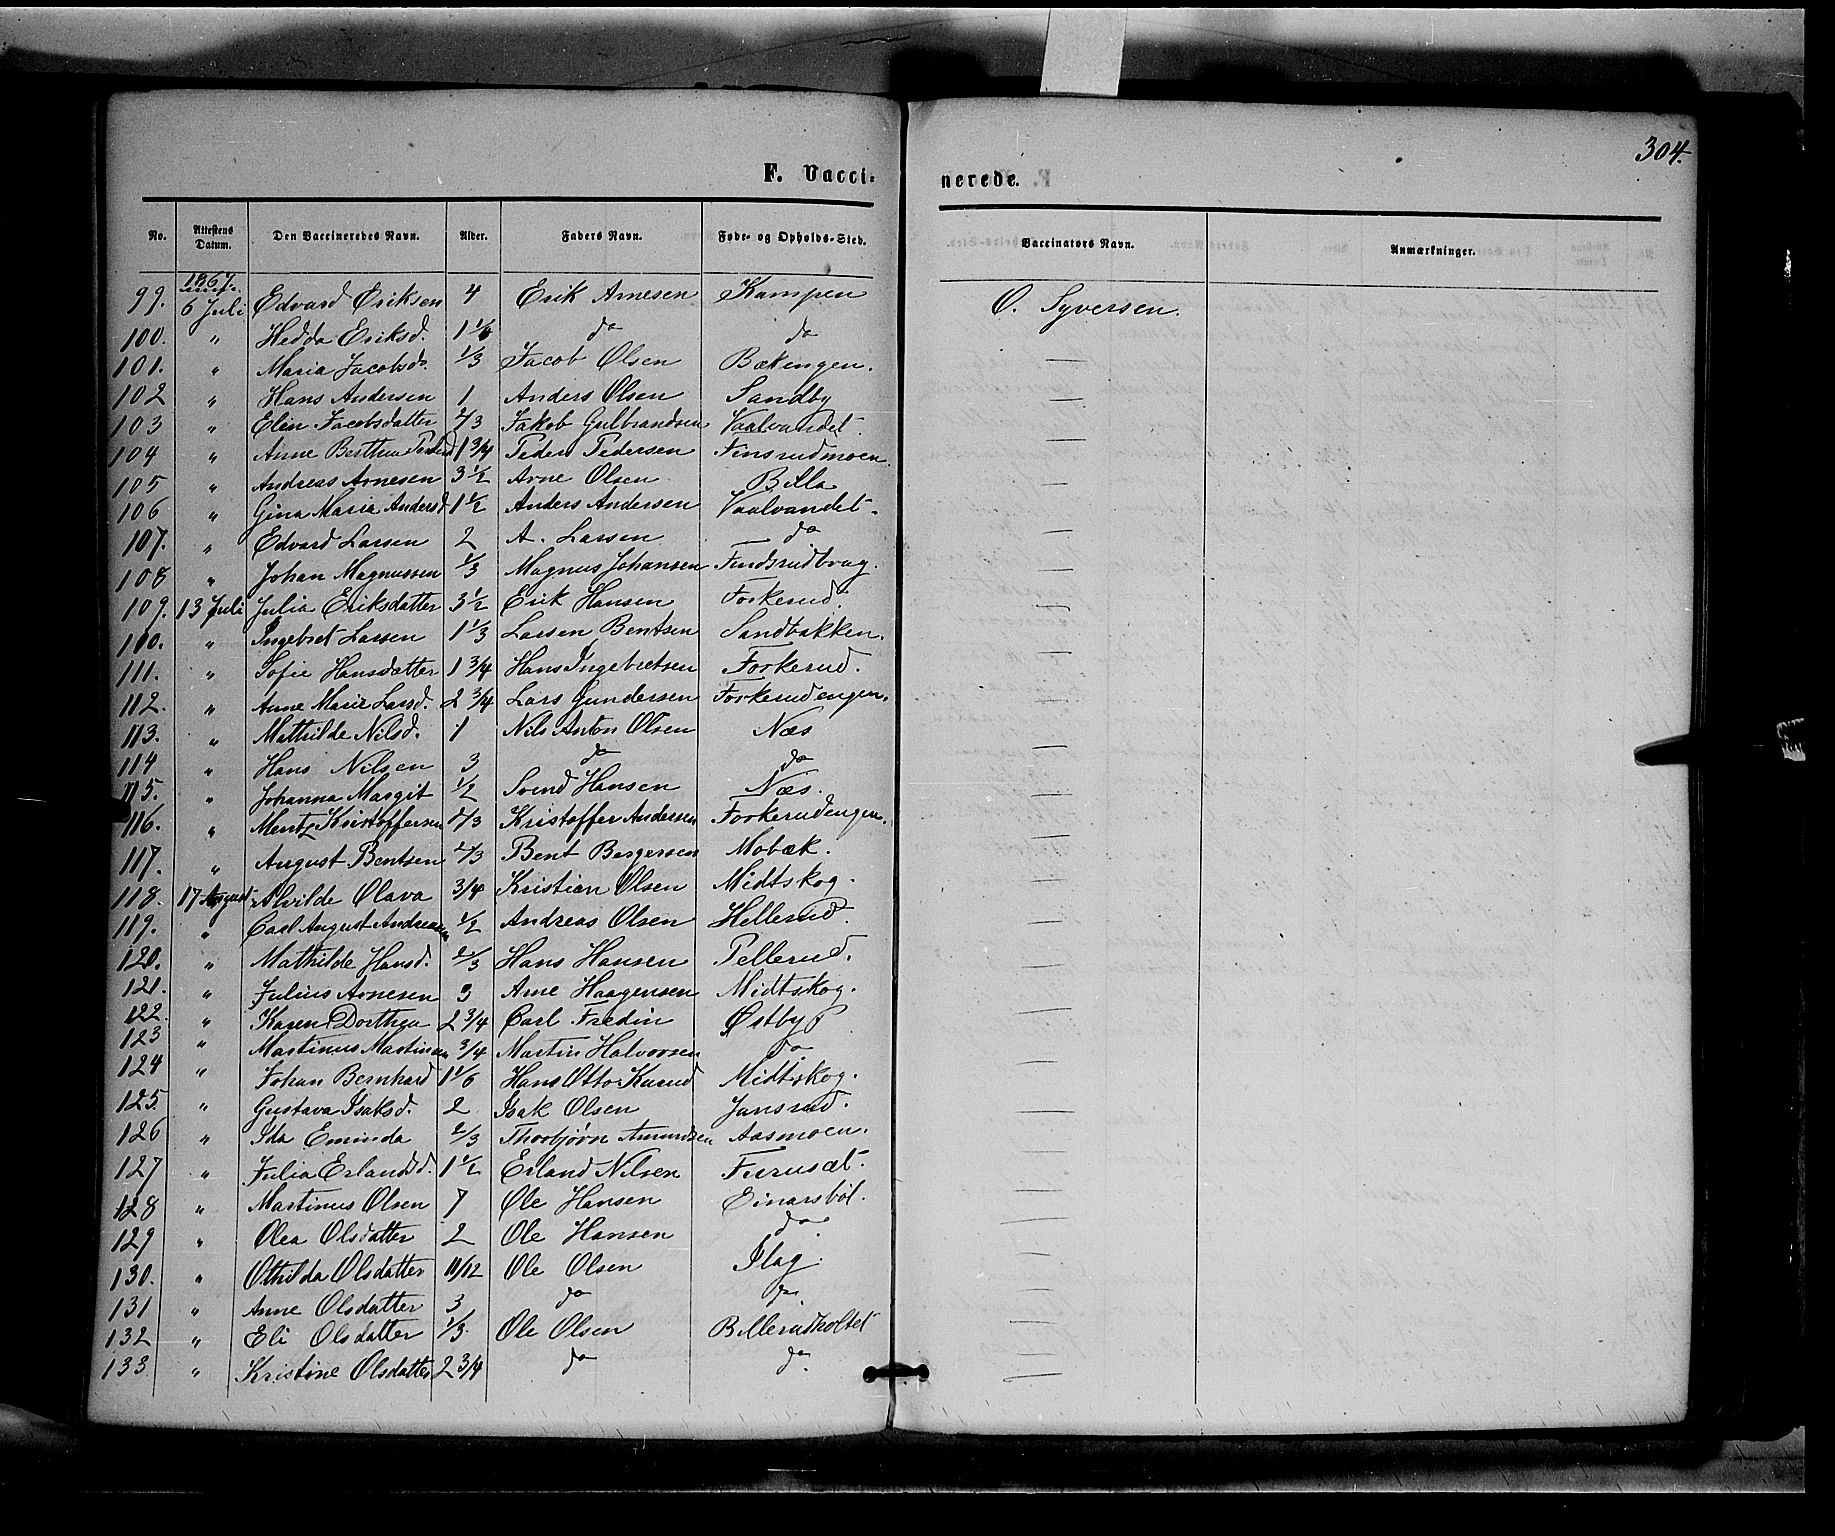 304.
F. Vacci- nerede.
No. Attestens Datum. Den Vaccineredes Navn. Alder. Faders Navn. Føde- og Opholds-Sted. Vaccinators Navn. Anmærkninger.
1867.
99. 6 Juli Edvard Eriksen 4 Erik Arnesen Kampen O. Syversen.
100. " Hedda Eriksd. 1 1/6 do do —
101. " Maria Jacobsd. 1/3 Jacob Olsen Bækengen. —
102 " Hans Andersen 1 Anders Olsen Sandby —
103 " Elin Jacobsdatter 2/3 Jakob Gulbrandsen Vaalvandet. —
104 " Anne Berthea 1 3/4 Peder Pedersen Finsrudmoen. —
105 " Andreas Arnesen 3 1/2 Arne Olsen Billa —
106 " Gina Maria Andersd 1 1/2 Anders Andersen Vaalvandet. —
107. " Edvard Larsen 2 A. Larsen — do —
108 " Johan Magnussen 1/3 Magnus Johansen Findsrudbrag. —
109. 13 Juli Julia Eriksdatter 3 1/2 Erik Hansen Forkerud. —
110. " Ingebret Larsen 1 1/3 Larsen Bentsen Sandbakken. —
111. " Sofie Hansdatter 1 3/4 Hans Ingebretsen Forkerud. —
112. " Anne Marie Larsd. 2 3/4 Lars Gundersen Forkerudengen. —
113. " Mathilde Nilsd. 1 Nils Anton Olsen Næs —
114 " Hans Nilsen 3 do do —
115. " Johanna Margit 1/2 Svend Hansen Næs. —
116. " Mentz Kristoffersen 2/3 Kristoffer Andersen Forkerudengen. —
117. " August Bentsen 2/3 Bent Bergersen Mobæk. —
118. 17 August Alvilde Olava 3/4 Kristian Olsen Midtskog. —
119. " Carl August Andreasen 1/2 Andreas Olsen Hellerud. —
120. " Mathilde Hansd. 2/3 Hans Hansen Pellerud. —
121. " Julius Arnesen 3 Arne Haagensen Midtskog. —
122. " Karen Dorthea 2 3/4 Carl Fredin Østby —
123 " Martinus Martinsen 3/4 Martin Halvorsen do —
124 " Johan Bernhard 1 1/6 Hans Otto Midtskog. —
125. " Gustava Isaksd. 2 Isak Olsen Jansrud. —
126 " Ida Eminda 2/3 Thorbjørn Amundsen Aasmoen. —
127 " Julia Erlandsd. 1 1/2 Erland Nilsen Furusæt. —
128 " Martinus Olsen 7 Ole Hansen Einarsböl. —
129 " Olea Olsdatter 2 Ole Hansen do —
130. " Othilda Olsdatter 11/12 Ole Olsen Flag. —
131 " Anne Olsdatter 3 do do —
132 " Eli Olsdatter 1/3. Ole Olsen Billerudholtet —
133 " Kristine Olsdatter 2 3/4 do do —